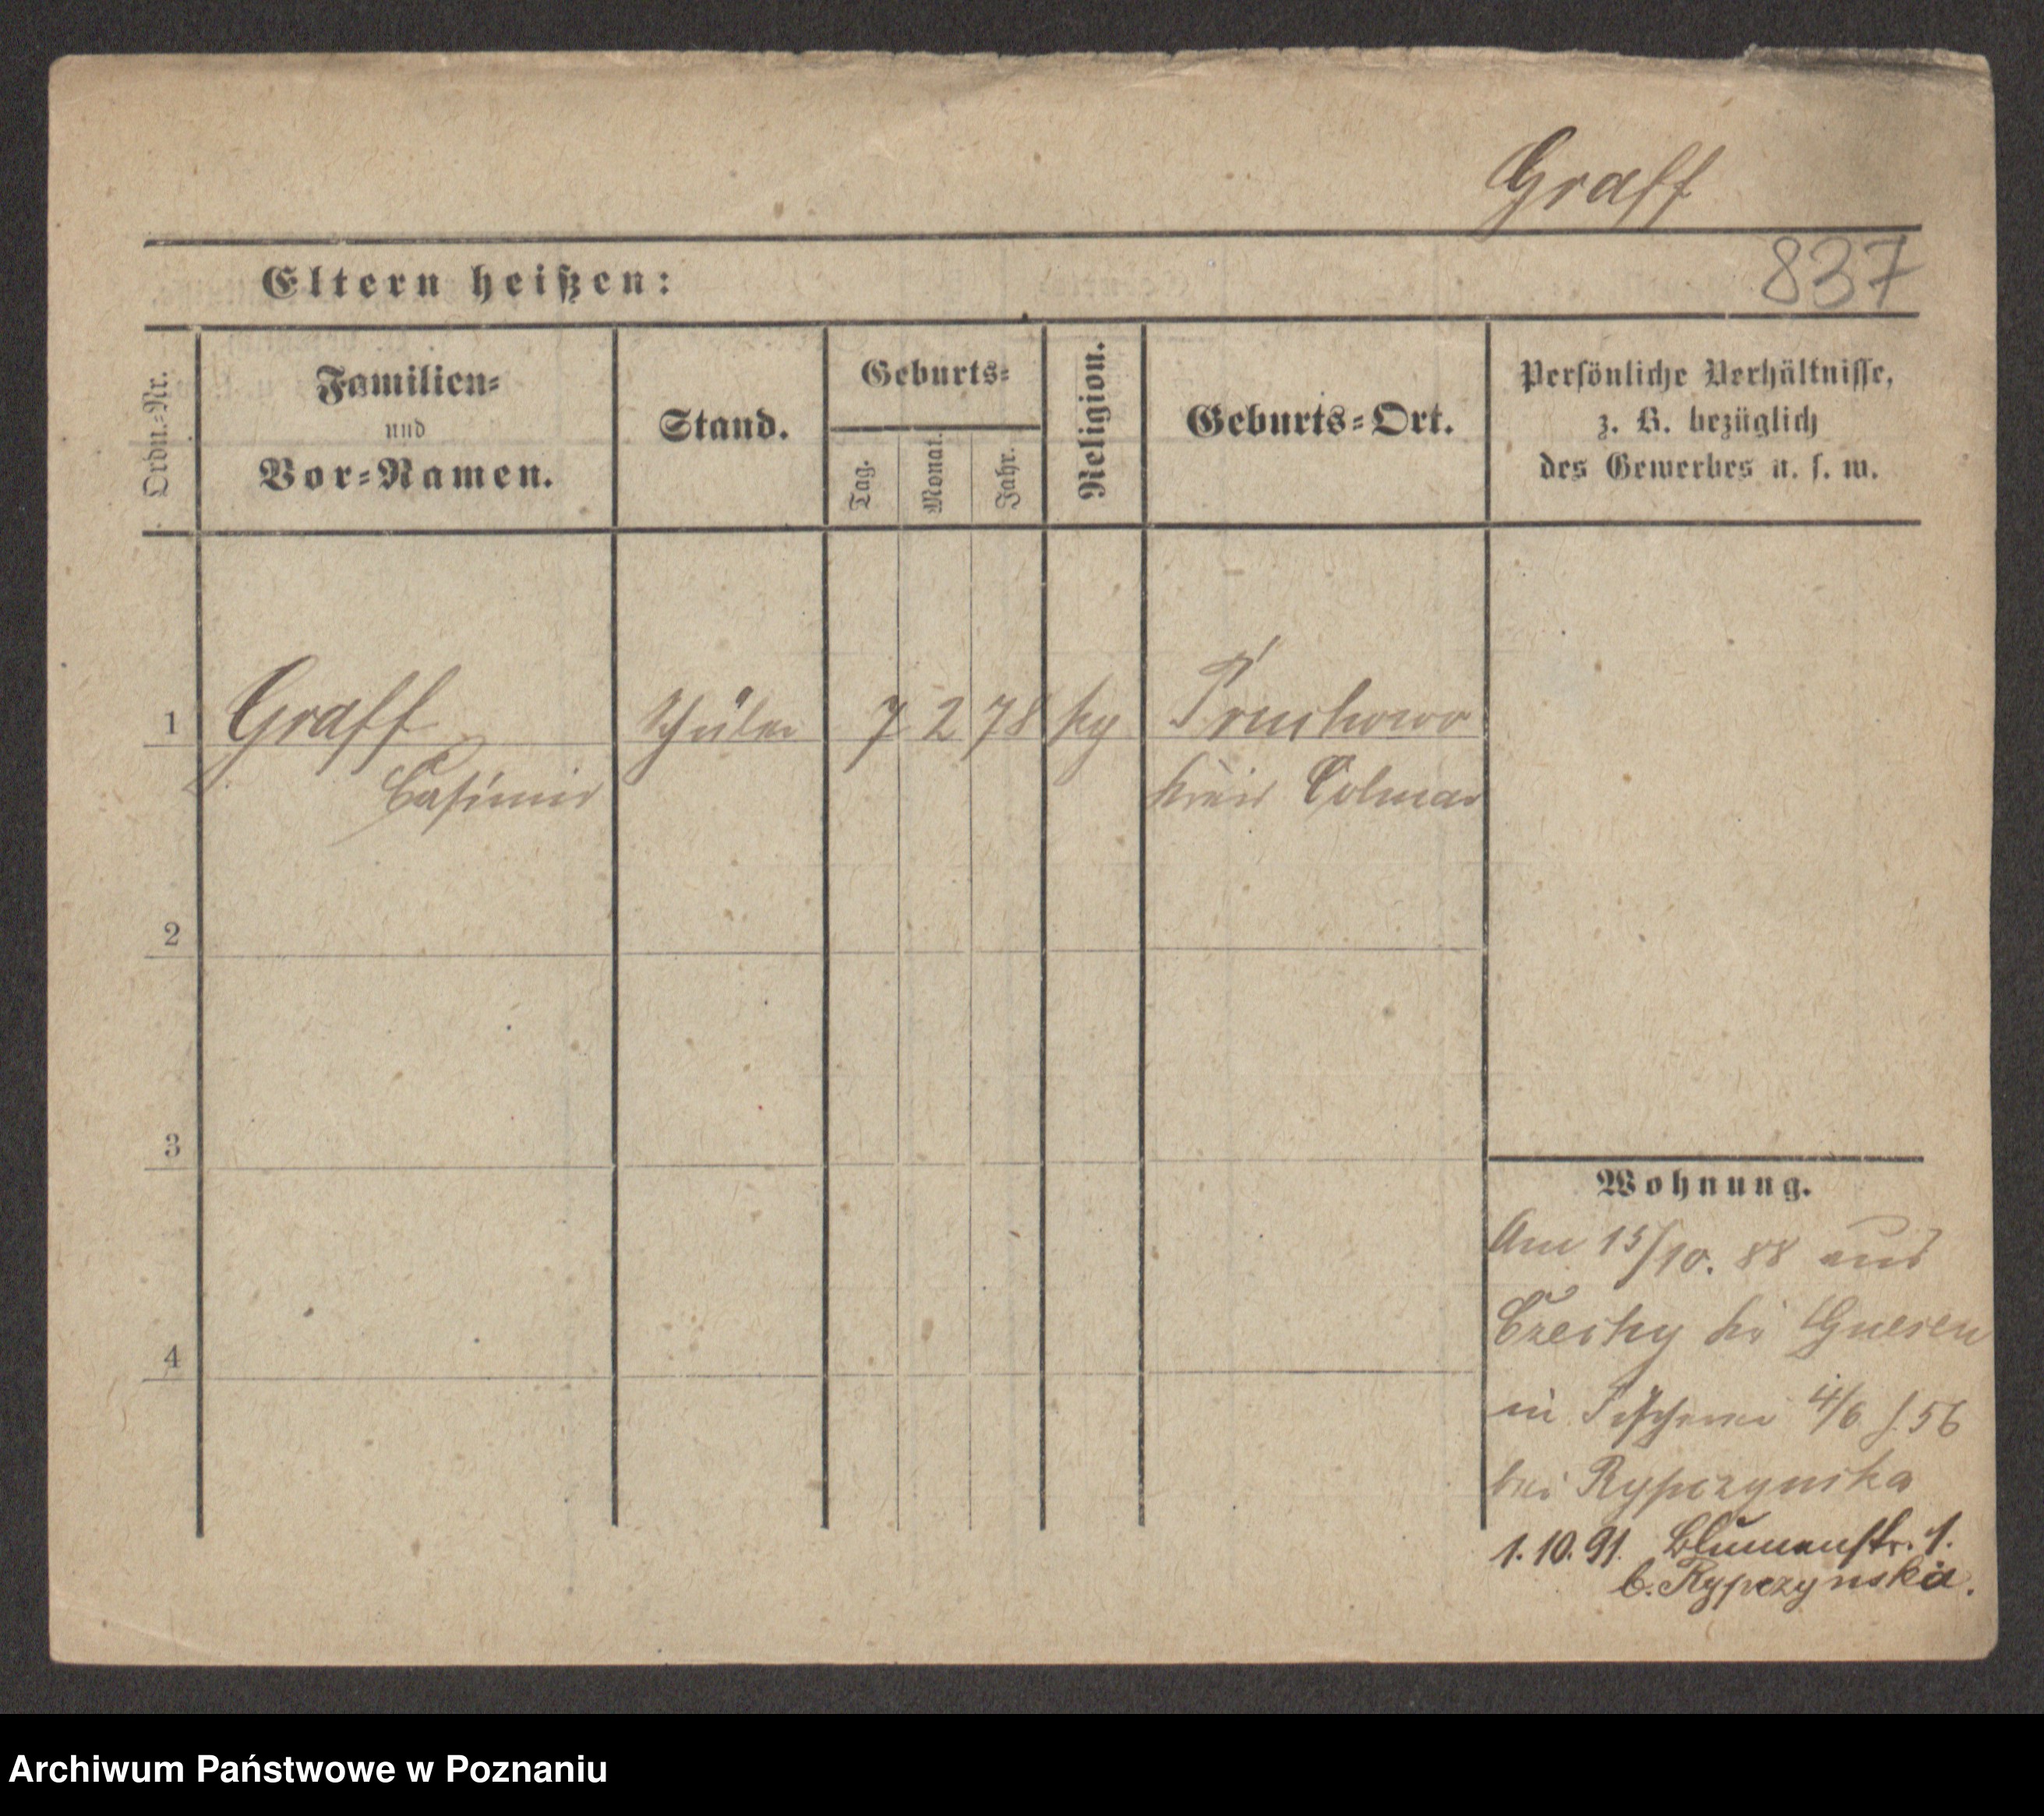 Graff
837
Eltern heißen:
Ordn.=Nr.
Familien=
und
Vor=Namen.
Stand.
Geburts=
Tag.
Monat.
Jahr.
Religion.
Geburts=Ort.
Persönliche Verhältnisse,
z. B. bezüglich
des Gewerbes u. s. w.
1 Graff Schüler 7 2 78 Pruchowo
Casimir Kreis Colmar
2
3
4
Wohnung.
Am 15/10. 88 aus
Czesky bei Gnesen
in 4/6 56
bei Rypczynska
1.10.91. Blumenstr. 1.
b. Rypczynska.
Archiwum Państwowe w Poznaniu